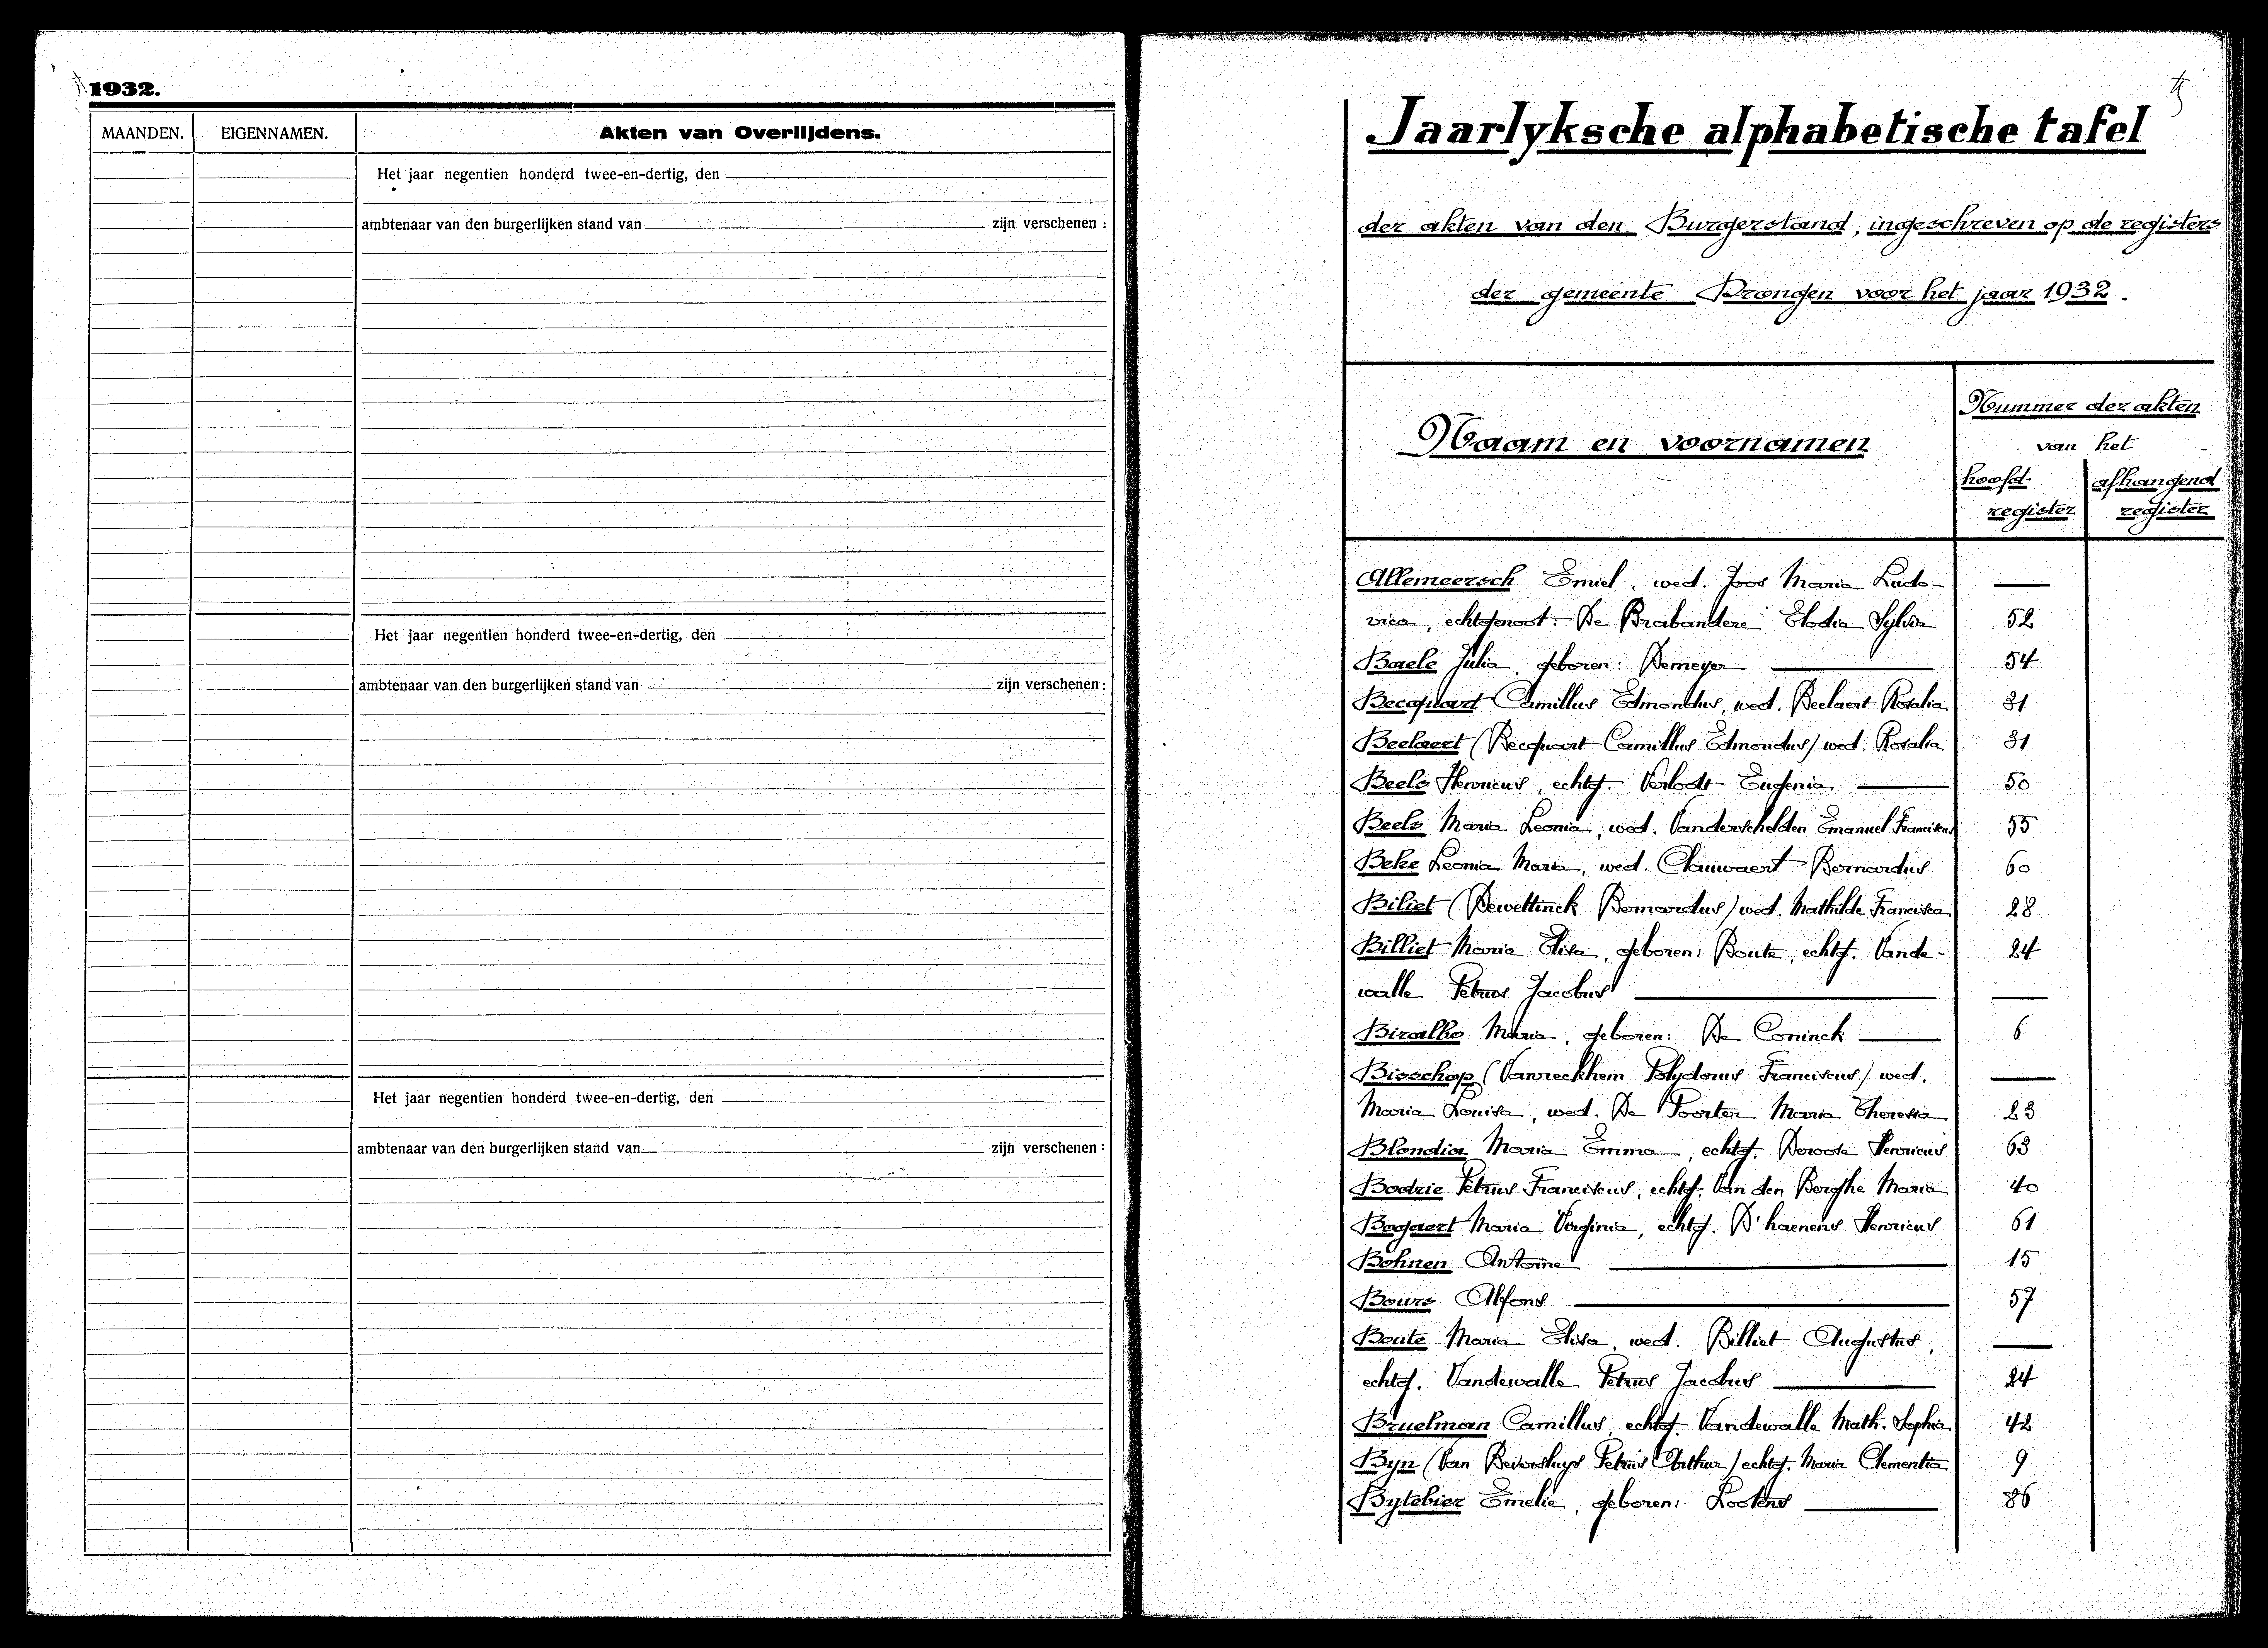 1932.
MAANDEN. EIGENNAMEN. Akten van Overlijdens.
Het jaar negentien honderd twee-en-dertig, den
ambtenaar van den burgerlijken stand van zijn verschenen :
Het jaar negentien honderd twee-en-dertig, den
ambtenaar van den burgerlijken stand van zijn verschenen :
Het jaar negentien honderd twee-en-dertig, den
ambtenaar van den burgerlijken stand van zijn verschenen :
Jaarlyksche alphabetische tafel
der akten van den Burgerstand, ingeschreven op de registers
der gemeente Drongen voor het jaar 1932.
Naam en voornamen
Nummer der akten
van het
hoofd- afhangend
register register
Allemeersch Emiel, wed. Joos Maria Ludo- —
vica, echtgenoot: De Brabandere Elodia Sylvia 52
Baele Julia, geboren: Demeyer — 54
Becquart Camillus Edmondus, wed. Beelaert Rosalia 31
Beelaert (Becquart Camillus Edmondus) wed. Rosalia 31
Beels Henricus, echtg. Verlodt Eugenia — 50
Beels Maria Leonia, wed. Vanderschelden Emanuel Franciscus 55
Beke Leonia Maria, wed. Clauwaert Bernardus 60
Biliet (Dewettinck Bernardus) wed. Mathilde Francisca 28
Billiet Maria Elisa, geboren: Boute, echtg. Vande- 24
walle Petrus Jacobus —
Biralho Maria, geboren: De Coninck — 6
Bisschop (Vanreckhem Polydorus Franciscus) wed. —
Maria Louisa, wed. De Poorter Maria Theresia 23
Blondia Maria Emma, echtg. Deroose Henricus 63
Bodrie Petrus Franciscus, echtg. Van den Berghe Maria 40
Bogaert Maria Virginia, echtg. D'haenens Henricus 61
Bohnen Antoine — 15
Bours Alfons — 57
Boute Maria Elisa, wed. Billiet Augustus, —
echtg. Vandewalle Petrus Jacobus — 24
Bruelman Camillus, echtg. Vandewalle Math. Sophia 42
Byn (Van Beversluys Petrus Arthur) echtg. Maria Clementia 9
Bytebier Emelie, geboren: Lootens — 86